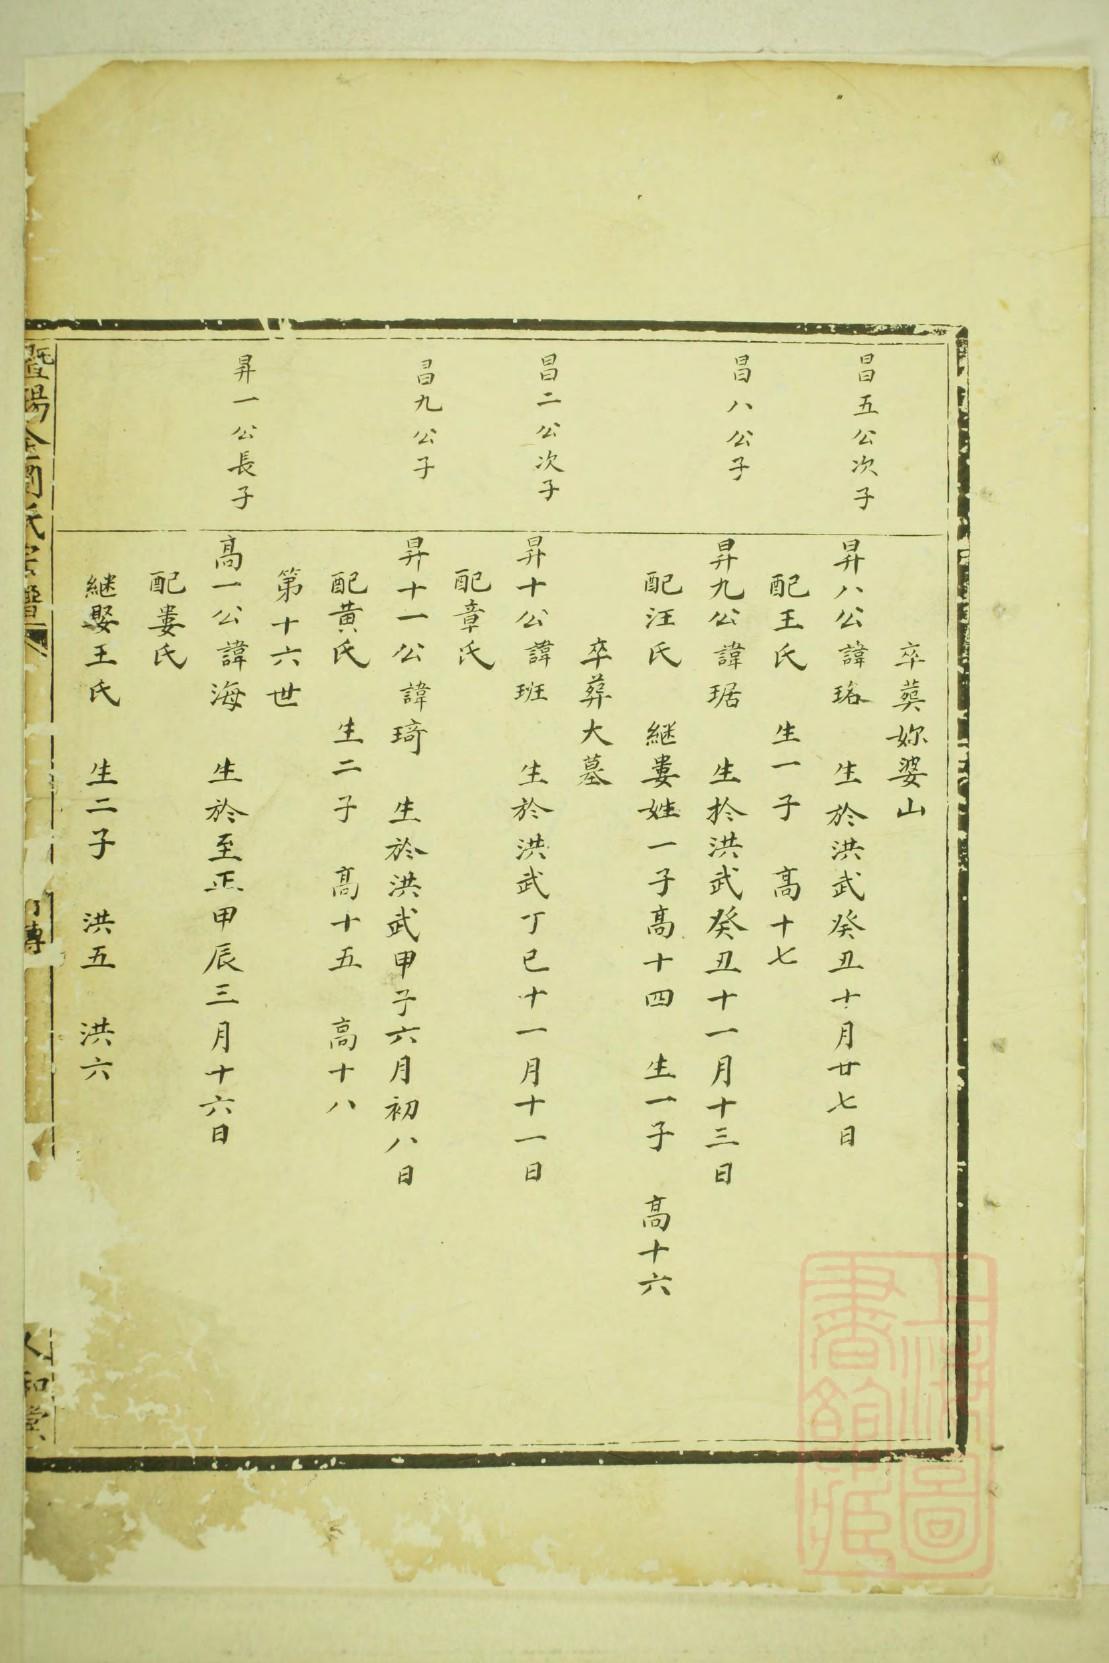 卒葬妳婆山
昌五公次子
昇八公諱珞 生於洪武癸丑十月廿七日
配王氏 生一子 高十七
昌八公子
昇九公諱琚 生扵洪武癸丑十一月十三日
配汪氏 継婁姓一子高十四 生一子 高十六
卒葬大墓
昌二公次子
昇十公諱班 生於洪武丁巳十一月十一日
配章氏
昌九公子
昇十一公諱琦 生於洪武甲子六月初八日
配黄氏 生二子 高十五 高十八
第十六世
昇一公長子
高一公諱海 生於至正甲辰三月十六日
配婁氏
継娶王氏 生二子 洪五 洪六
暨陽 氏宗譜
傳
人和堂
上海圖書館藏